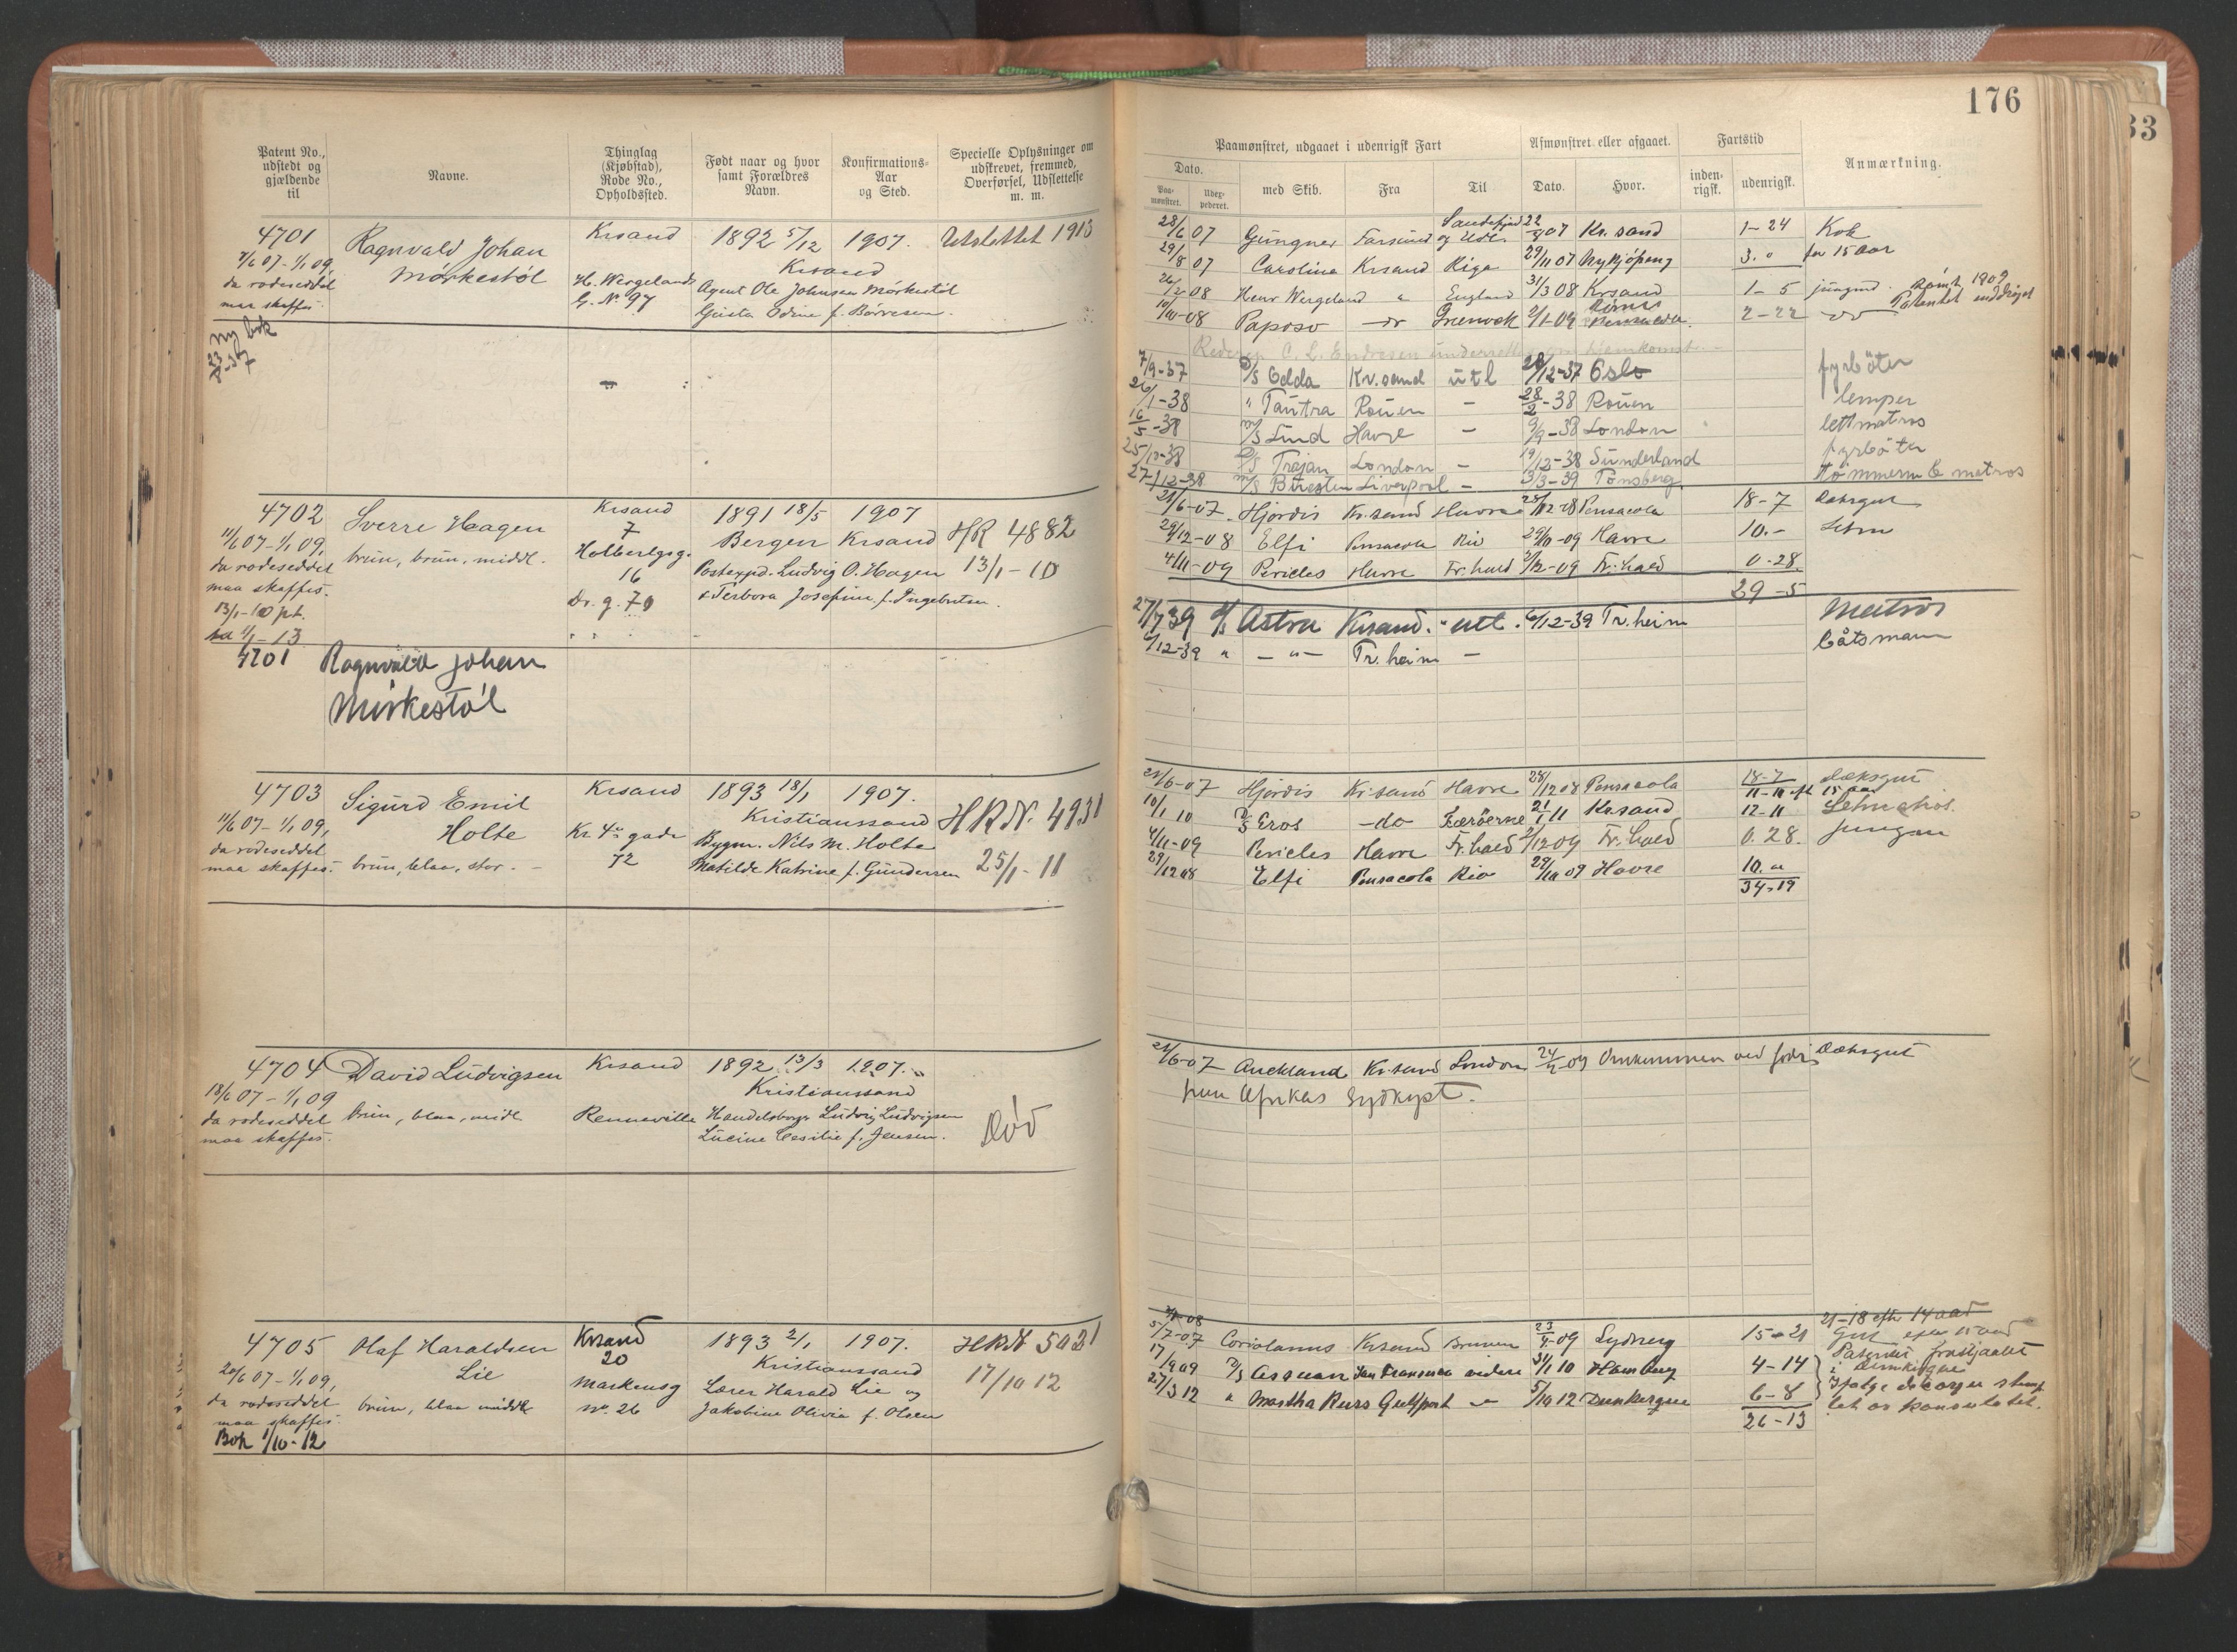 176
33
Patent No., udstedt og gjældende til
Navne.
Thinglag (Kjøbstad), Rode No., Opholdssted.
Født naar og hvor samt Forældres Navn.
Konfirmations-Aar og Sted.
Specielle Oplysninger om udskrevet, fremmed, Overførsel, Udslettelse m. m.
Paamønstret, udgaaet i udenrigsk Fart
Afmønstret eller afgaaet.
Fartstid
Anmærkning.
Dato.
Paa-mønstret.
Udex-pederet.
med Skib.
Fra
Til
Dato.
Hvor.
inden-rigsk.
udenrigsk.
4701 Ragnvald Johan Krsand 1892 5/12 1907. Utslettet 1913
7/6 07-1/1 09, Mörkestöl Krsand
da rodeseddel H. Wergelands Agent Ole Johnsen Mörkestöl
maa skaffes. G. No. 97 Gusta Odine f. Börresen.
ny bok
23/8-37
28/6 07 Gungner Farsund Sandefjord og Udl. 22/8 07 Kr.sand 1-24 Kok
29/8 07 Carolina Krsand Riga 29/11 07 Nykjöping 3. " før 15 aar
26/2-08 Henr Wergeland " England 31/3 08 Krsand 1-5 jungmd. Rømt 1909
10/10-08 Paposo -do Greenock 2/1-09 2-22 Patentet inddraget
Rederen C. L. Endresen underrettet om hjemkomst.
7/9-37 D/S Edda Kr.sand utl 28/12-37 Oslo fyrböter
26/1-38 " Tautra Rouen - 28/2-38 Rouen lemper
16/5-38 M/S Lind Havre - 9/9-38 London lettmatros
25/10-38 D/S Trajan London - 19/12-38 Sunderland fyrböter
27/12-38 M/S Liverpool - 13/3-39 Tønsberg. tömmerm & matros
4702 Sverre Haagen Krsand 1891 18/5 1907 HR 4882
11/6 07-1/1 09, brun, brun, middl. 7 Bergen Krsand
da rodeseddel Holbergsg. Postexpd. Ludvig O. Hagen 13/1-10
maa skaffes. 16 & Terbora Josefine f. Ingebretsen.
13/1-10 pt. Dr. g. 70
til 1/1-13
21/6-07. Hjördis Kr.sand Havre 28/12-08 Pensacola 18-7 Dæksgut
29/12-08 Elfi Pensacola Rio 29/10-09 Havre 10.-
4/11-09 Pericles Havre Fr.hald 2/12-09 Fr.hald 0-28.
29-5
4701 Ragnvald Johan
Mörkestöl
27/7 39 D/S Astrea Krsand. utl. 6/12-39 Tr.heim Matros
6/12-39 " -"- Tr.heim - båtsmann
4703 Sigurd Emil Krsand 1893 18/1 1907. HR N. 4931
11/6 07-1/1 09, Holte Kr. 4de gade Kristianssand
da rodeseddel 72 Bygm. Nils M. Holte
maa skaffes. brun, blaa, stor. - Matilde Katrine f. Gundersen 25/1-11
21/6-07 Hjördis Kr.sand Havre 28/12 08 Pensacola 18-7 Dæksgut
10/1 10 D/S Eros -do Færöerne 21/1 11 Kr.sand 12-11
4/11-09 Pericles Havre Fr.hald 2/12 09 Fr.hald 0.28. jungm
29/12 08 Elfi Pensacola Rio 29/10 09 Havre 10. "
34-19
4704 David Ludvigsen Krsand 1892 13/3 1907.
18/6 07-1/1 09 Kristianssand
da rodeseddel brun, blaa, midl. Renneville Handelsborger Ludvig Ludvigsen Død
maa skaffes. Lucine Cesilie f. Jensen.
21/6-07 Auckland Kr.sand London 09 Omkommen ved forlis Dæksgut
paa Afrikas Sydkyst.
4705 Olaf Haraldsen Krsand 1893 2/1 1907. HRN 5021
20/6 07-1/1 09, Lie 20 Kristianssand
da rodeseddel brun, blaa middl. Markensg Lærer Harald Lie og 17/10 12
maa skaffes. No. 26 Jakobine Olivia f. Olsen
Bok 1/10-12
21-18 eft 14 aar
5/7-07 Coriolanus Krsand Bremen 23/4-09 Lydney 15-21
17/9 09 D/S Assuan San Fransisco videre 31/1 10 Hamburg 4-14
27/3 12 " Martha Russ Gulfport 5/10 12 Dunkerque 6-8
26-13
Gut efter 15 aar
Patentet frastjaalet
i Dunkirque
let av konsulatet.